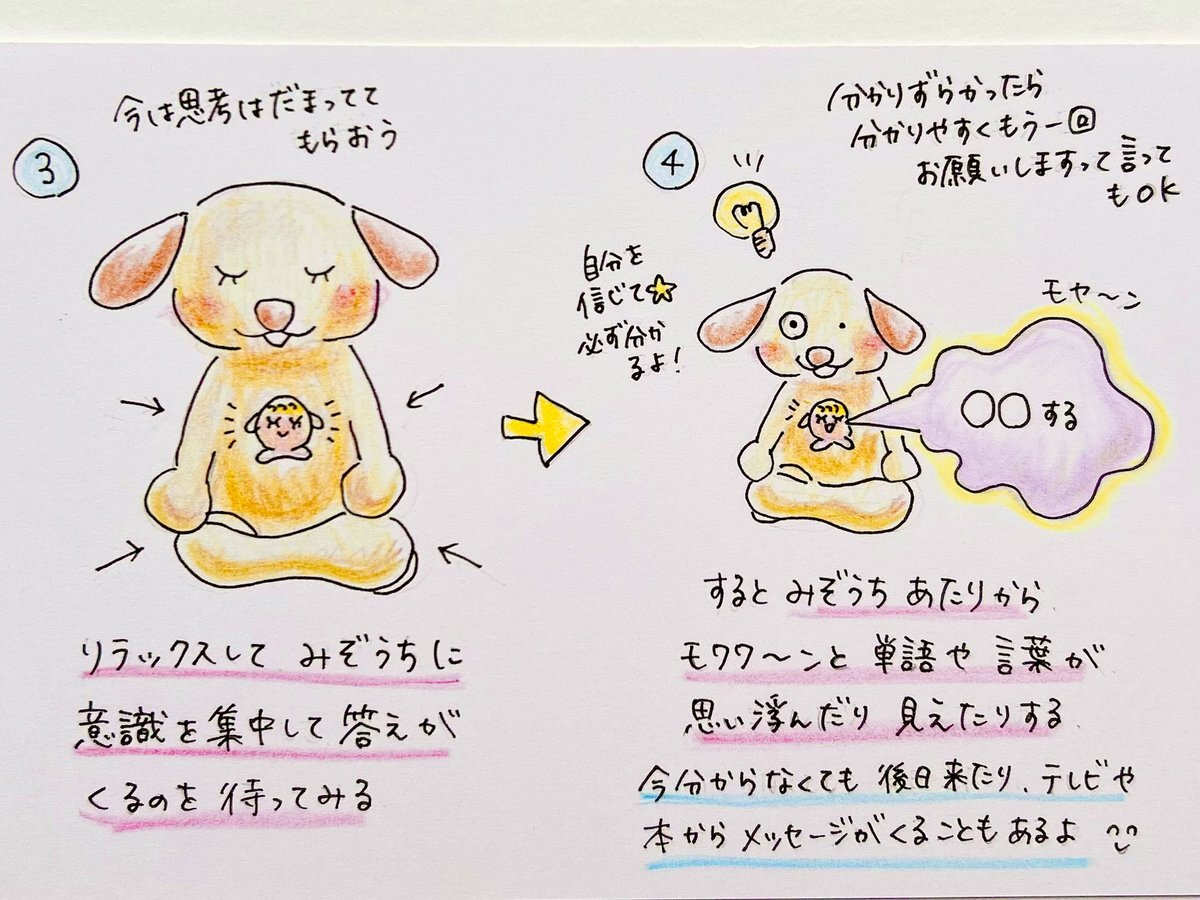 ③
今は思考はだまってて
もらおう
リラックスして みぞうちに
意識を集中して 答えが
くるのを 待ってみる
④
分かりずらかったら
分かりやすくもう一回
お願いしますって言って
もOK
自分を
信じて☆
必ず分か
るよ!
モヤ〜ン
○○する
すると みぞうち あたりから
モワワ〜ンと 単語や 言葉が
思い浮んだり 見えたりする
今分からなくても 後日来たり、テレビや
本から メッセージがくることもあるよ